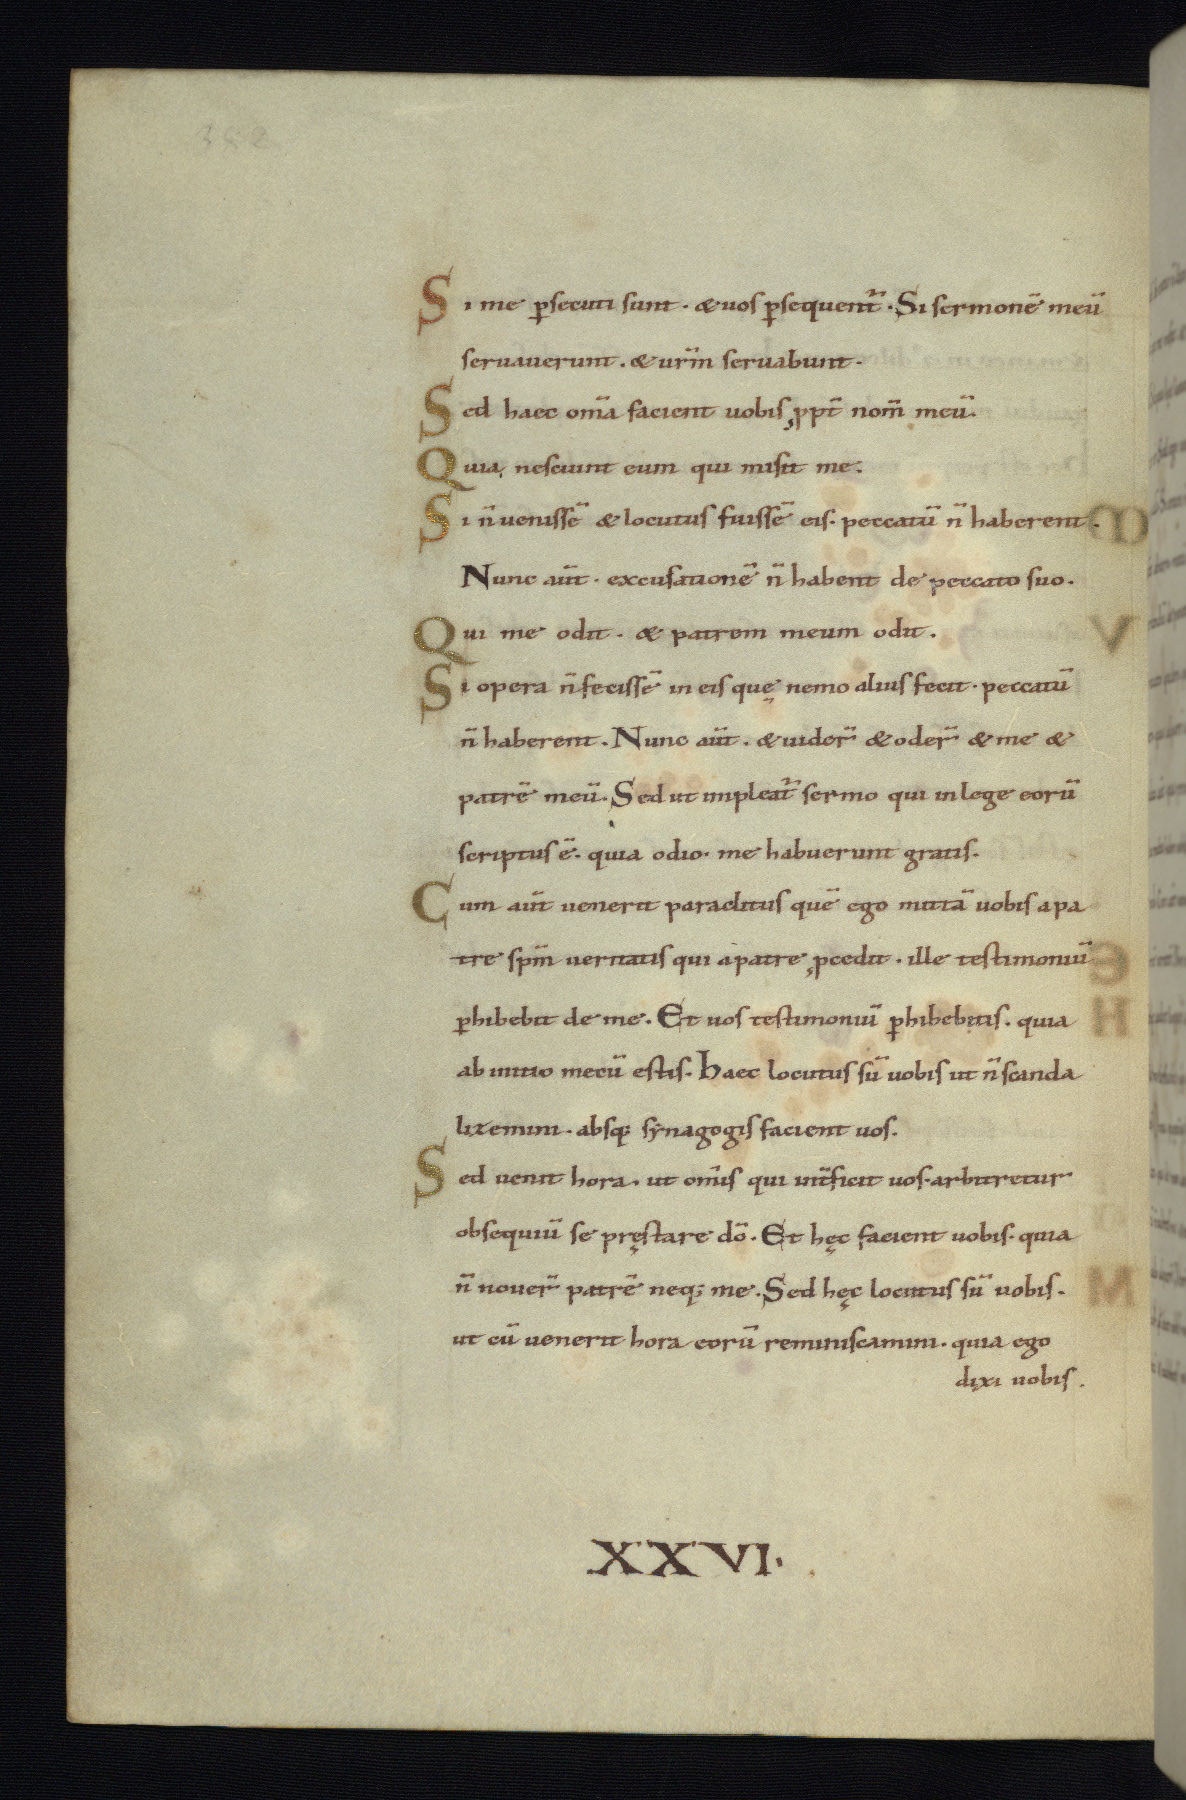 Si me p̄secuti sunt · & uos p̄sequent̄ · Si sermonē meū
seruauerunt . & ur̄m seruabunt ·
Sed haec om̄a facient uobis ꝓpt̄ nom̄ meū.
Quia nesciunt eum qui misit me.
Si n̄ uenissē & locutus fuissē eis · peccatū n̄ haberent .
Nunc aūt · excusationē n̄ habent de peccato suo .
Qui me odit · & patrem meum odit .
Si opera n̄ fecissē in eis quę nemo alius fecit · peccatū
n̄ haberent . Nunc aūt . & uider̄ & oder̄ & me &
patrē meū. Sed ut impleat̄ sermo qui in lege eorū
scriptus ē. quia odio · me habuerunt gratis.
Cum aūt uenerit paraclitus quē ego mittā uobis a pa
tre spm̄ ueritatis qui a patre ꝓcedit . ille testimoniū
p̄hibebit de me . Et uos testimoniū p̄hibebitis . quia
ab initio mecū estis · haec locutus sū uobis ut n̄ scanda
lizemini . absq; synagogis facient uos.
Sed uenit hora . ut om̄is qui int̄ficit uos · arbitretur
obsequiū se pręstare dō . Et hęc facient uobis · quia
n̄ nouer̄ patrē neq; me . Sed hęc locutus sū uobis .
ut cū uenerit hora eorū reminiscamini . quia ego
dixi uobis .
XXVI.